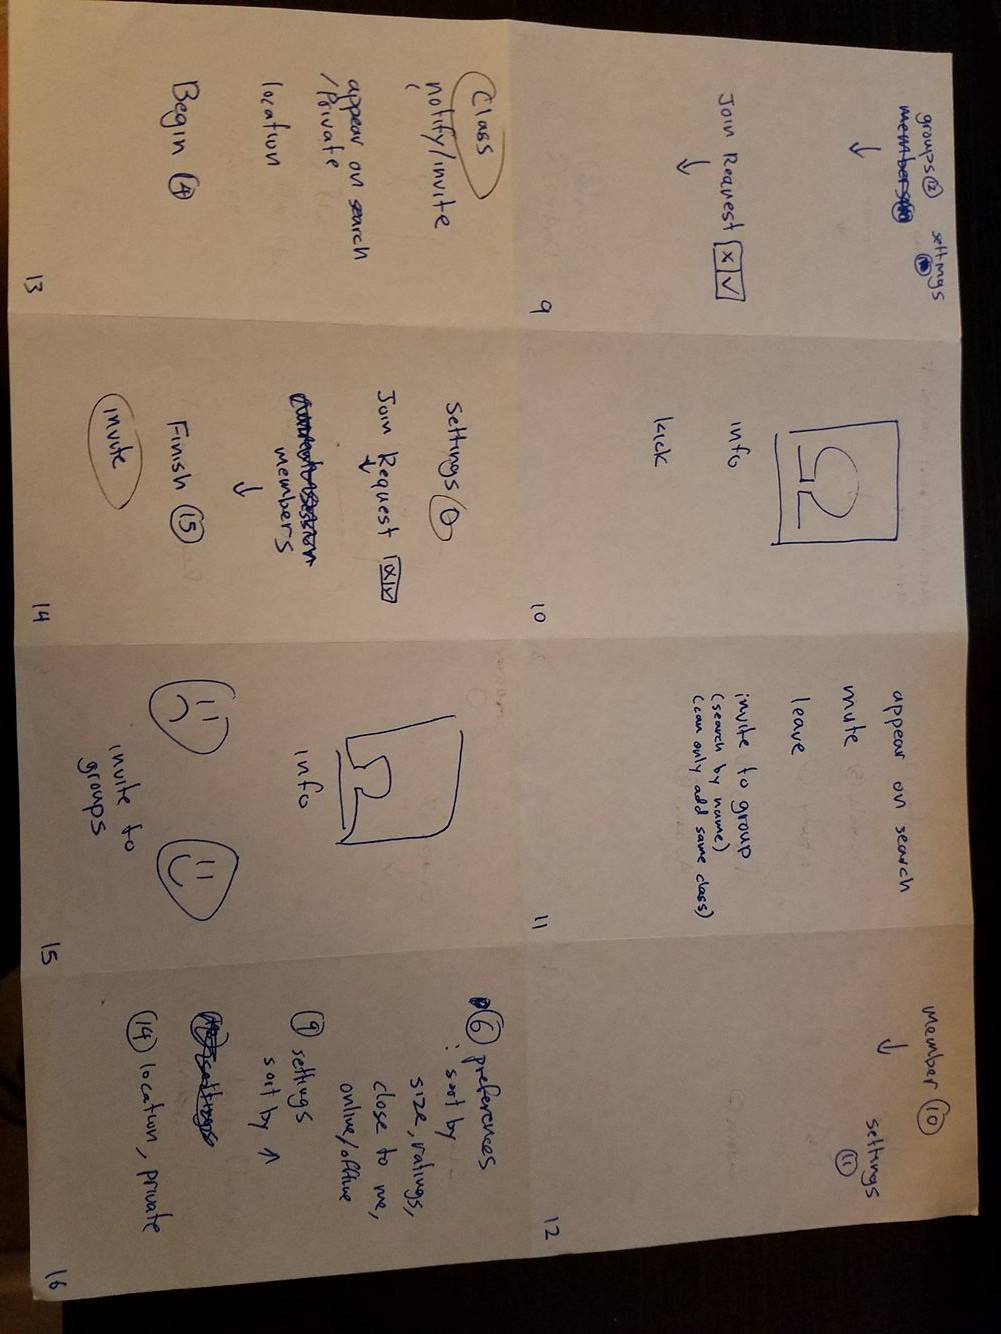 groups 12 settings
members
Join Request x ✓
9
info
kick
10
appear on search
mute
leave
invite to group
(search by name)
(can only add same class)
11
member 10
settings
11
12
Class
notify/invite
appear on search
/Private
location
Begin 14
13
settings
Join Request x ✓
members
Finish 15
invite
14
info
invite to
groups
15
6 preferences
: sort by
size, ratings,
close to me,
online/offline
9 settings
sort by ↑
settings
14 location, private
16